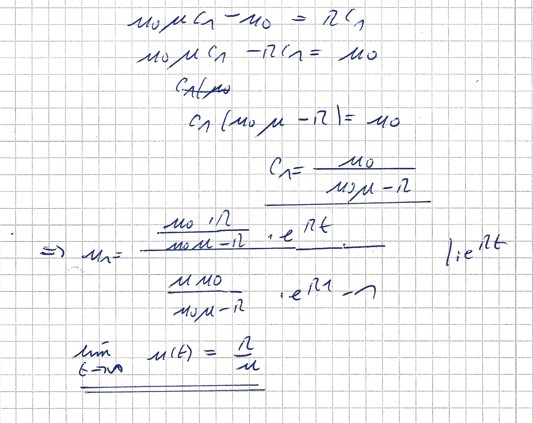 u0 μ C1 - u0 = r C1
u0 μ C1 - r C1 = u0
C1(u0
C1(u0 μ - r) = u0
C1 = u0 / (u0 μ - r)
=> u = ((u0 · r)/(u0 μ - r) · e^{rt}) / ((μ u0)/(u0 μ - r) · e^{r1} - 1) | : e^{rt}
lim t→∞ u(t) = r/μ